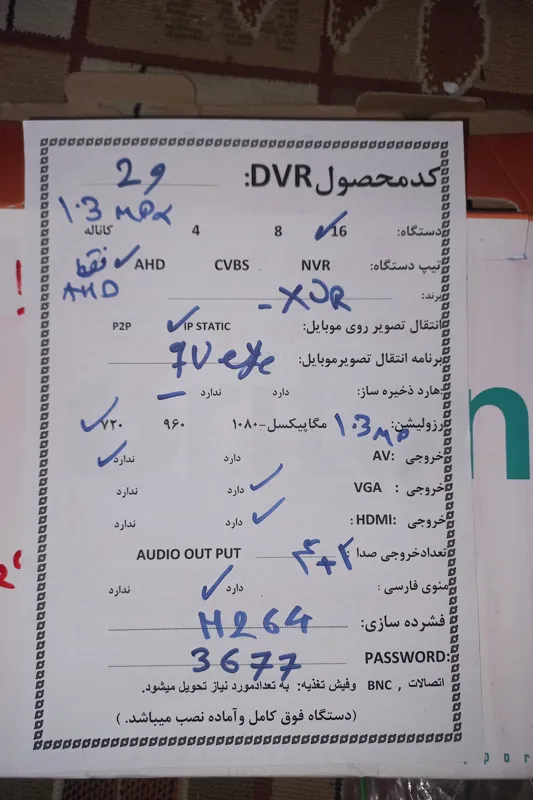 کدمحصول DVR: 29
1.3 MPX
دستگاه: 16 8 4 کاناله
تیپ دستگاه: NVR CVBS AHD فقط
AHD
برند: XVR -
انتقال تصویر روی موبایل: IP STATIC P2P
برنامه انتقال تصویرموبایل: eye
هارد ذخیره ساز: دارد ندارد
رزولیشن: 1.3 MP مگاپیکسل-۱۰۸۰ ۹۶۰ ۷۲۰
خروجی AV: دارد ندارد
خروجی VGA : دارد ندارد
خروجی HDMI: دارد ندارد
تعدادخروجی صدا : ۴+۲ AUDIO OUT PUT
منوی فارسی : دارد ندارد
فشرده سازی: H264
PASSWORD: 3677
اتصالات , BNC وفیش تغذیه: به تعدادمورد نیاز تحویل میشود.
(دستگاه فوق کامل وآماده نصب میباشد. )
n
por